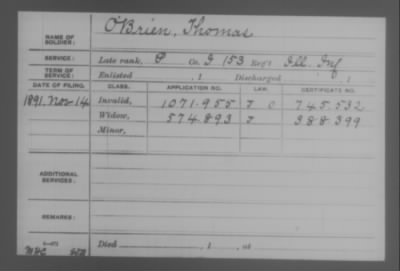 O'Brien, Thomas
NAME OF SOLDIER:
SERVICE: Late rank, P Co. G 153 Reg't Ill. Inf
TERM OF SERVICE: Enlisted , 1 Discharged , 1
DATE OF FILING. CLASS. APPLICATION NO. LAW. CERTIFICATE NO.
1891. Nov 14 Invalid, 1071.955 J O 745.532
Widow, 574.893 J 388399
Minor,
ADDITIONAL SERVICES:
REMARKS:
Died , 1 , at